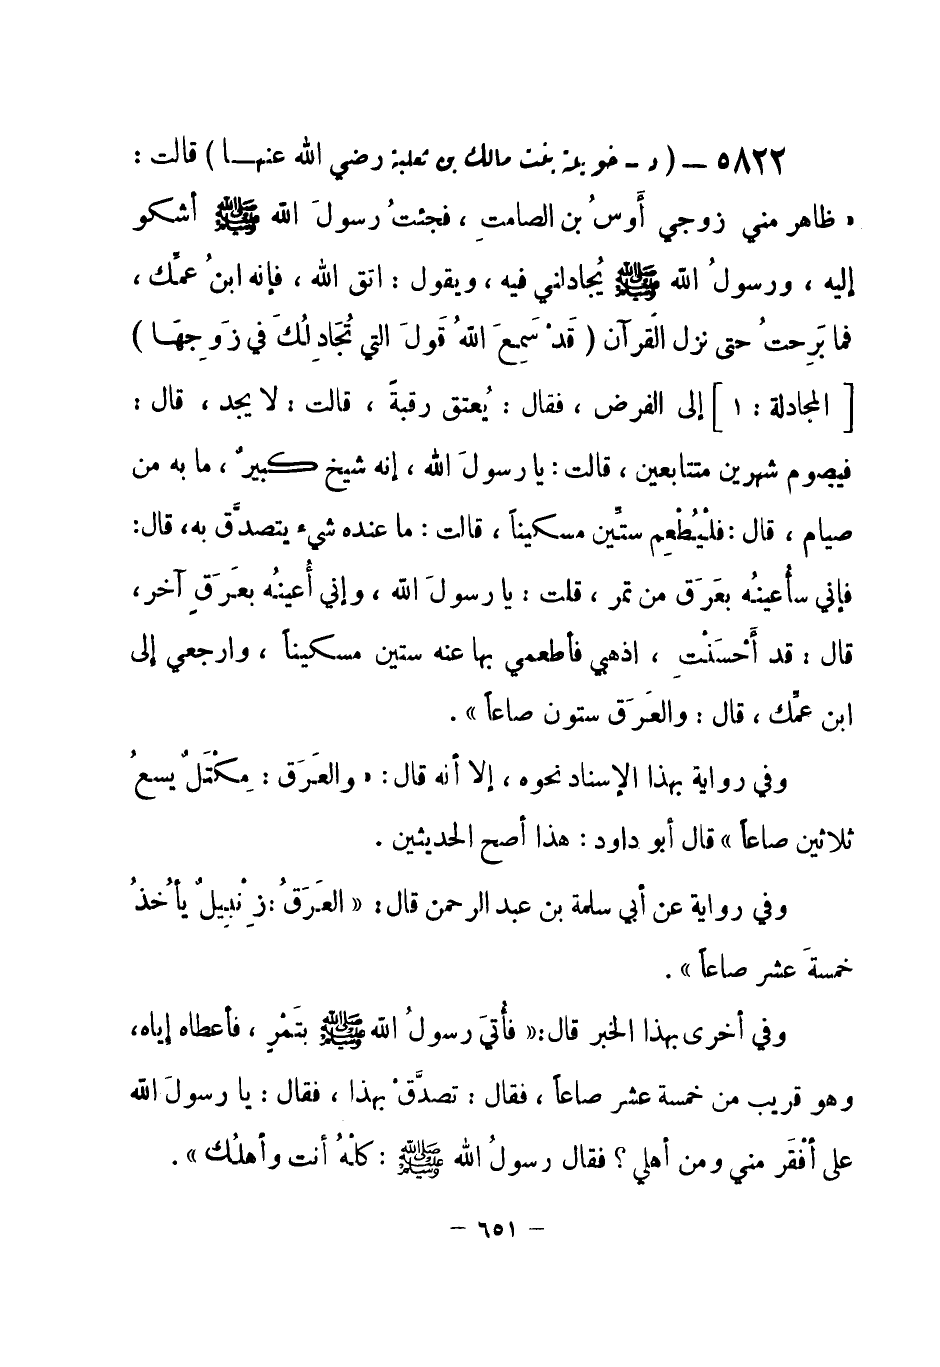 ٥٨٢٢ – ( د - خويلة بنت مالك بن ثعلبة رضي الله عنهـا ) قالت :
« ظاهر مني زوجي أَوسُ بن الصامتِ ، فجئتُ رسولَ الله ﷺ أشكو
إليه ، ورسولُ الله ﷺ يُجادلني فيه ، ويقول : اتق الله ، فإنه ابنُ عمِّك ،
فما بَرِحتُ حتى نزل القرآن ( قَدْ سَمِعَ اللهُ قَولَ التي تُجَادِلُكَ في زَوجِهَـا )
[ المجادلة : ١ ] إلى الفرض ، فقال : يُعتق رقبةً ، قالت : لا يجد ، قال :
فيصوم شهرين متتابعين ، قالت : يا رسولَ الله ، إنه شيخ كبيرٌ ، ما به من
صيام ، قال : فليُطْعِم ستِّين مسكيناً ، قالت : ما عنده شيء يتصدَّق به، قال:
فإني سأُعينُه بعَرَق من تمر ، قلت : يا رسولَ الله ، وإني أُعينُه بعَرَقٍ آخر،
قال : قد أَحْسَنْتِ ، اذهبي فأطعمي بها عنه ستين مسكيناً ، وارجعي إلى
ابن عمِّك ، قال : والعَرَق ستون صاعاً » .
وفي رواية بهذا الإسناد نحوه ، إلا أنه قال : « والعَرَق : مِكْتَلٌ يسعُ
ثلاثين صاعاً » قال أبو داود : هذا أصح الحديثين .
وفي رواية عن أبي سلمة بن عبد الرحمن قال : « العَرَقُ : زِنْبِيلٌ يأخُذُ
خمسةَ عشر صاعاً » .
وفي أخرى بهذا الخبر قال :« فأُتيَ رسولُ الله ﷺ بتَمْرٍ ، فأعطاه إياه،
وهو قريب من خمسة عشر صاعاً ، فقال : تصدَّقْ بهذا ، فقال : يا رسولَ الله
على أفْقَر مني ومن أهلي ؟ فقال رسولُ الله ﷺ : كلْهُ أنت وأهلُك » .
– ٦٥١ –